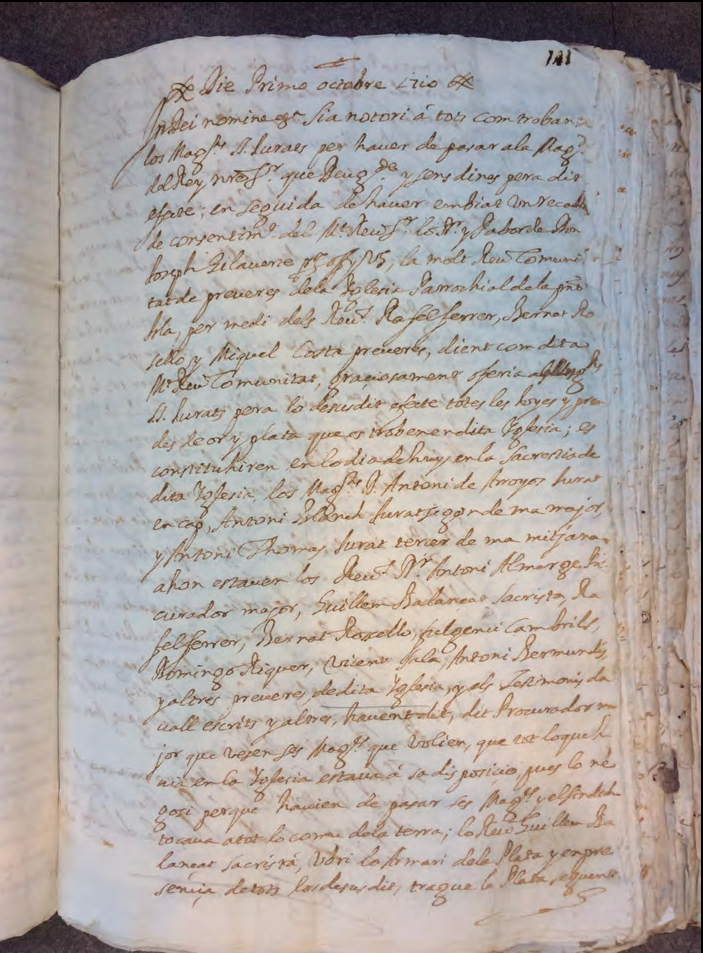 141
Die Primo octobre 1710
In Dei nomine &c. Sia notori á tots com troban
los Mag.chs S. Jurats per haver de pasar a la Mag.t
del Rey nre S.r que Deu g.de y sens dines pera dit
efecte; en seguida de haver embiat un recado
de consentim.t del M.t Rev.t S.r lo D.r y Paborde Don
Joseph la molt Rev.t Comuni
tat de preveres de la Yglesia Parrochial de la pnt
Isla, per medi dels Rev.ts Rafel ferrer, Bernat Ro
sello y Miquel Costa preveres, dient com dita
M.t Rev.t Comunitat, graciosament oferia als Mag.chs
S. Jurats pera lo desusdit efecte totes les Joyes y pre
des de or y plata que es troben en dita Yglesia; es
constituhiren en lo dia de huy en la Sacrestia de
dita Yglesia, los Mag.chs S. Antoni de Arroyos Jurat
en cap, Antoni Jurat segon de ma major
y Antoni Thomas, Jurat tercer de ma mitjana
ahon estaven los Rev.ts D.r Antoni Almarge Pro
curador major, Guillem Balansat Sacrista, Ra
fel ferrer, Bernat Rosello, fulgenci Cambrils,
Domingo Riquer, Vicent Sala, Antoni Bermudes
y altres preveres de dita Yglesia, y els Testimonis da
vall escrits y altres, havent dit, dit Procurador ma
jor que vesen ses Mag.ts que volien, que tot lo que
en la Yglesia estava á sa disposicio, pues lo ne
goci perque havien de pasar ses Mag.ts y el Sindich
tocava a tot lo comu de la terra; lo Rev.t Guillem Ba
lansat sacristá, obri lo Armari de la Plata y en pre
sencia de tots los desusdits, trague la Plata seguent